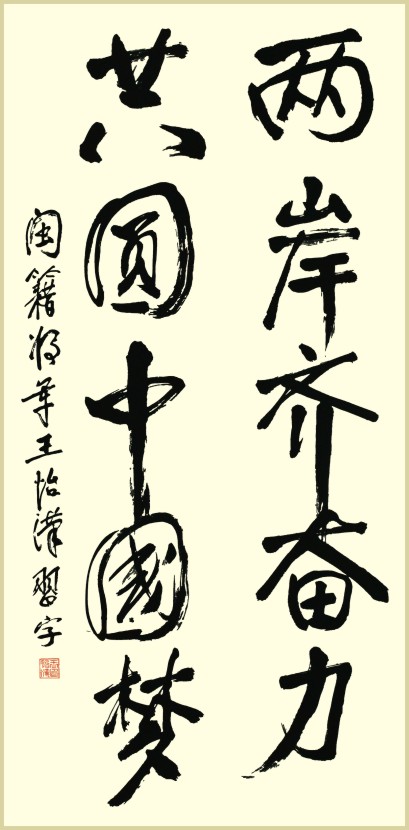 两岸齐奋力
共圆中國梦
闽籍将军王怡漢習字